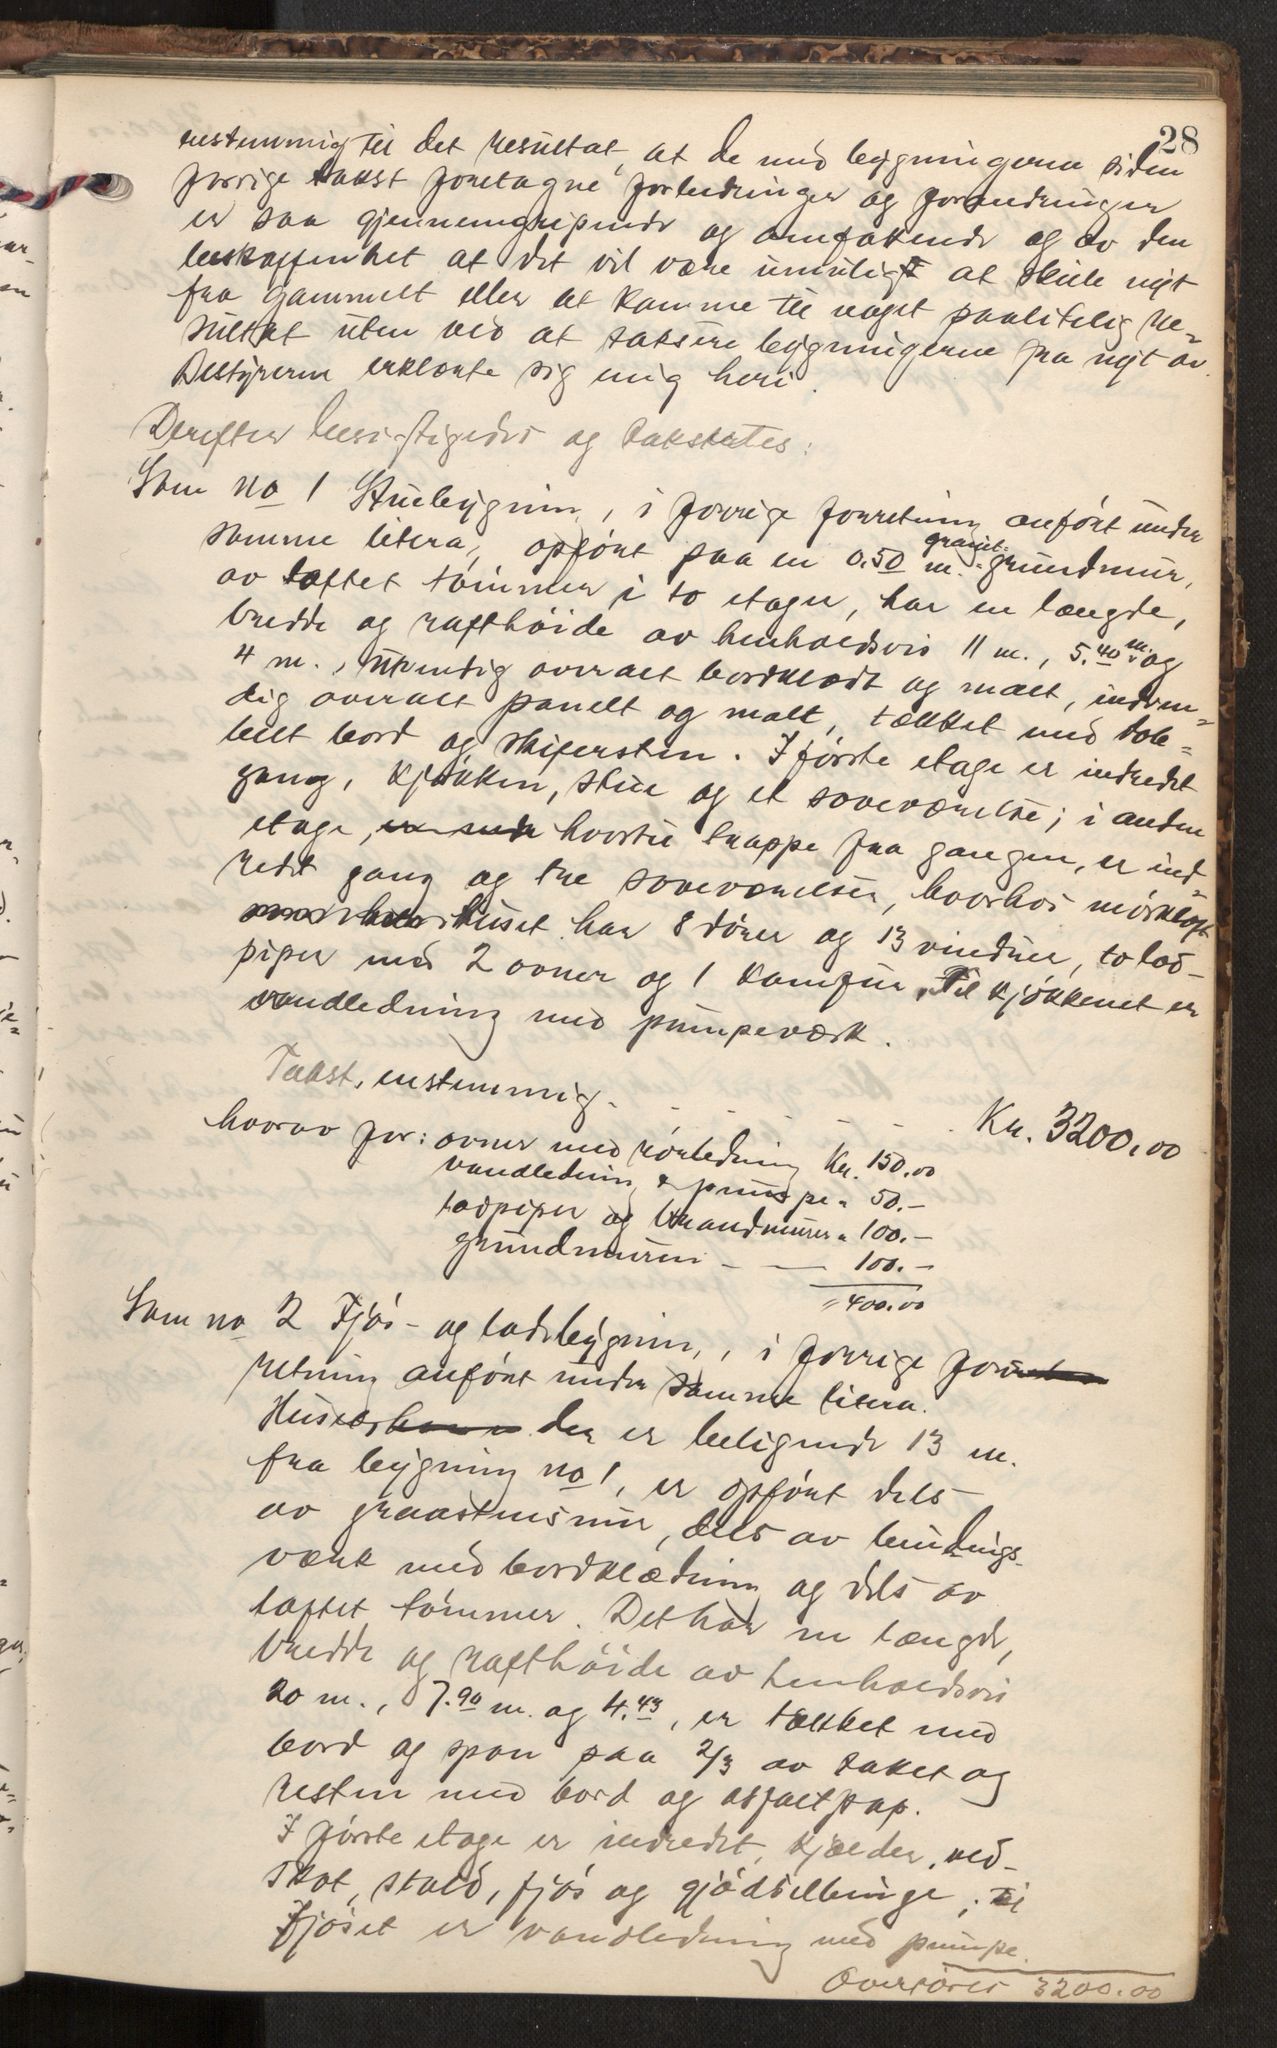 28
enstemmig til det resultat, at de med bygningerne siden
forrige takst foretagne forbedringer og forandringer
er saa gjennemgripende og omfattende og av den
beskaffenhet at det vil være umuligt at skille nyt
fra gammelt eller at komme til noget paalitelig re-
sultat uten ved at taksere bygningerne fra nyt av.
Bestyreren erklærte sig enig heri.
Derefter besigtigedes og takstertes:
Som no 1 Stuebygning, i forrige forretning anført under
samme litera, opført paa en 0.50 m. granit-grundmur,
av laftet tømmer i to etager, har en længde,
bredde og rafthöide av henholdsvis 11 m., 5.40 m. og
4 m., utvendig overalt bordklædt og malt, indven-
dig overalt panelt og malt, tækket med dob-
belt bord og skifersten. I første etage er indredet
gang, kjøkken, stue og et soveværelse; i anden
etage, hvortil trappe fra gangen, er ind-
redet gang og tre soveværelser, hvorhos mørkloft
Huset har 8 dører og 13 vinduer, to lod-
piper med 2 ovner og 1 komfur. Til kjøkkenet er
vandledning med pumpeværk.
Takst, enstemmig - - - - Kr. 3200.00
hvorav for: ovner med rørledning Kr. 150.00
vandledning & pumpe " 50.-
lodpiper og brandmurer " 100.-
grundmuren - — 100.-
" 400.00
Som no 2 Fjøs- og ladebygning, i forrige for-
retning anført under samme litera.
Huset, der er beligende 13 m.
fra bygning no 1, er opført dels
av graastensmur, dels av bindings-
værk med bordklædning og dels av
laftet tømmer. Det har en længde,
bredde og rafthöide av henholdsvis
20 m., 7.90 m. og 4.43, er tækket med
bord og spon paa 2/3 av taket og
resten med bord og asfaltpap.
I første etage er indredet kjælder, ved-
skot, stald, fjøs og gjødselbinge; i
Fjøset er vandledning med pumpe.
Overføres 3200.00